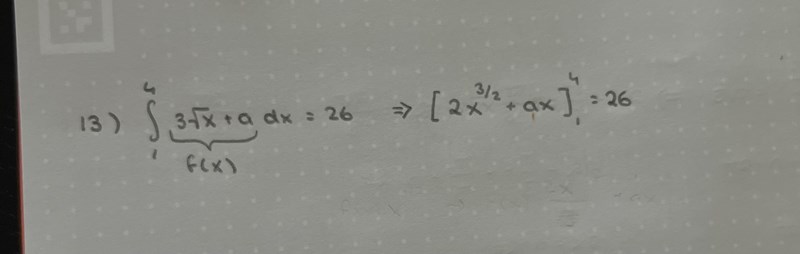 13) ∫₁⁴ 3√x + a dx = 26 ⇒ [2x^{3/2} + ax]₁⁴ = 26
f(x)